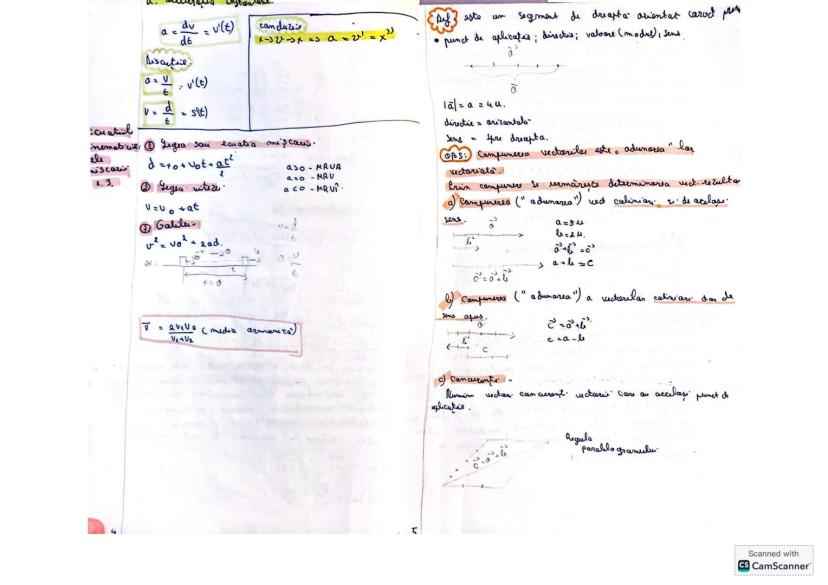 a = dv/dt = v'(t)
concluzie
x→v→x => a = v' = x''
Discuție:
a = v/t = v'(t)
v = d/t = s'(t)
1.3.
① Legea sau ecuația mișcării.
d = x0 + v0t + at²/2
a>0 - MRUA
a=0 - MRU
a<0 - MRUÎ
② Legea vitezei
v = v0 + at
③ Galilei
v² = v0² + 2ad.
v = d/t
a = v/t
t = 0
v̄ = 2v1v2/v1+v2 (media armonică)
4
Def este un segment de dreaptă orientat caract prin
• punct de aplicație; direcție; valoare (modul), sens.
a
a
|a| = a = 4u.
direcție = orizontală
sens = spre dreapta.
OBS: Compunerea vectorilor este „adunarea" lor
vectorială.
Prin compunere se urmărește determinarea vect. rezulta
a) Compunerea ("adunarea") vect coliniari și de același
sens.
a
b
a = 3u
b = 2u.
a + b = c
a + b = c
c = a + b
b) Compunerea ("adunarea") a vectorilor coliniari dar de
sens opus.
a
b
c
c = a + b
c = a - b
c) Concurenți -
Numim vectori concurenți vectorii care au același punct de
aplicație.
c = a + b
Regula
paralelogramului
5
Scanned with
CS CamScanner